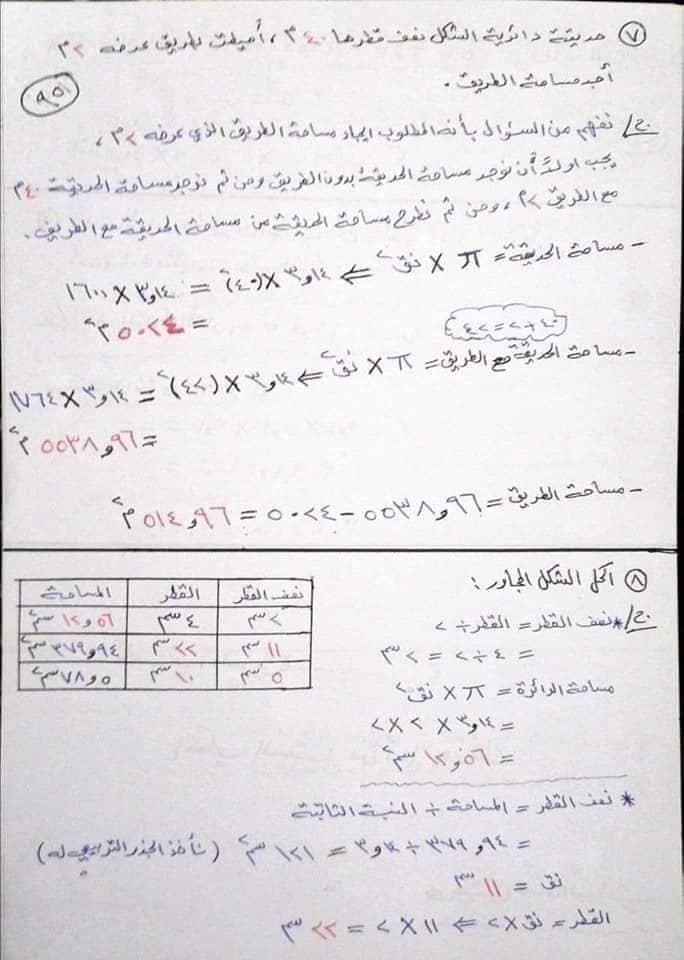 ٧ حديقة دائرية الشكل نصف قطرها ٤٠ م ، أحيطت بطريق عرضه ٢ م
أجد مساحة الطريق .
٩٥١
ج/ نفهم من السؤال بأنه المطلوب ايجاد مساحة الطريق الذي عرضه ٢ م ،
يجب اولاً أن نوجد مساحة الحديقة بدون الطريق ومن ثم نوجد مساحة الحديقة ٤٠ م
مع الطريق ٢ م ، ومن ثم نطرح مساحة الحديقة من مساحة الحديقة مع الطريق .
- مساحة الحديقة = π × نق٢ ⇐ ٣,١٤ × (٤٠)٢ = ٣,١٤ × ١٦٠٠
= ٥٠٢٤ م٢
٤٠ + ٢ = ٤٢
- مساحة الحديقة مع الطريق = π × نق٢ ⇐ ٣,١٤ × (٤٢)٢ = ٣,١٤ × ١٧٦٤
= ٥٥٣٨,٩٦ م٢
- مساحة الطريق = ٥٥٣٨,٩٦ - ٥٠٢٤ = ٥١٤,٩٦ م٢
٨ اكمل الشكل المجاور :
نصف القطر القطر المساحة
٢ سم ٤ سم ١٢,٥٦ سم٢
١١ سم ٢٢ سم ٣٧٩,٩٤ سم٢
٥ سم ١٠ سم ٧٨,٥ سم٢
ج/ * نصف القطر = القطر ÷ ٢
= ٤ ÷ ٢ = ٢ سم
مساحة الدائرة = π × نق٢
= ٣,١٤ × ٢ × ٢
= ١٢,٥٦ سم٢
* نصف القطر = المساحة ÷ النسبة الثابتة
= ٣٧٩,٩٤ ÷ ٣,١٤ = ١٢١ سم٢ (نأخذ الجذر التربيعي له)
نق = ١١ سم
القطر = نق × ٢ ⇐ ١١ × ٢ = ٢٢ سم